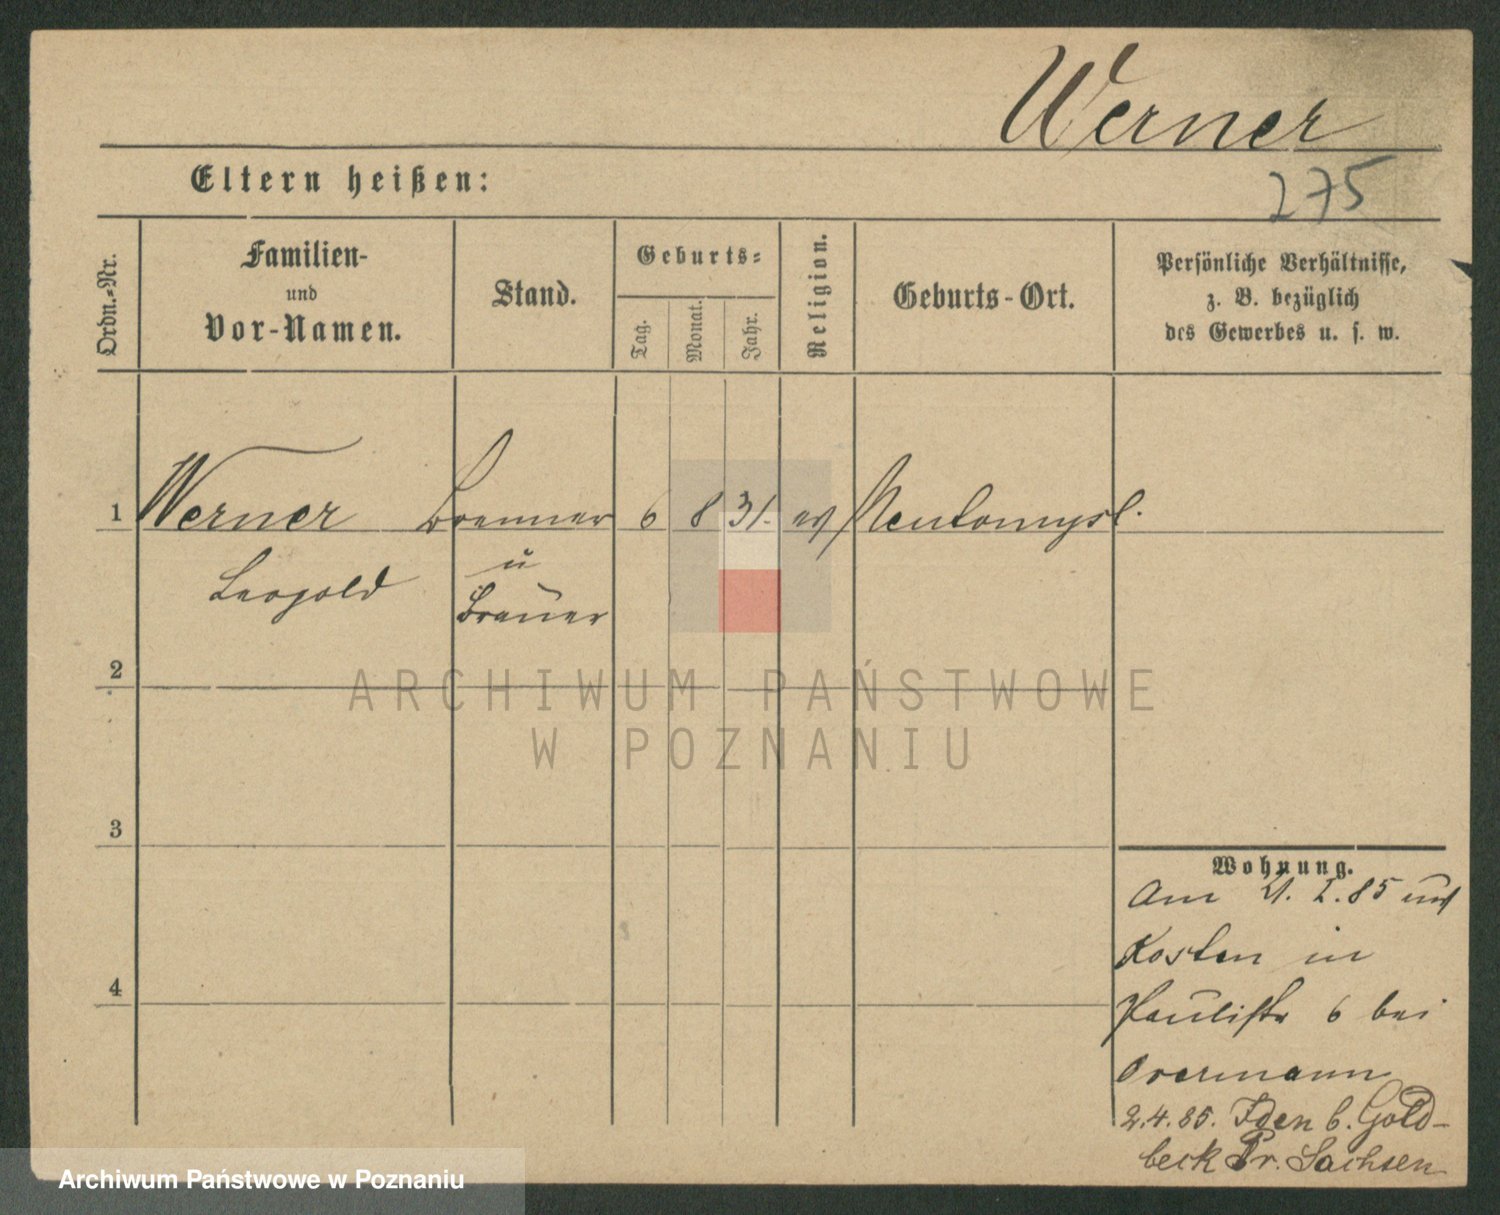 Werner
Eltern heißen:
275
Ordn.-Nr.
Familien-
und
Vor-Namen.
Stand.
Geburts-
Tag.
Monat.
Jahr.
Religion.
Geburts-Ort.
Persönliche Verhältnisse,
z. B. bezüglich
des Gewerbes u. s. w.
1 Werner Brenner 6 8 31. ev Neutomysl.
Leopold
u
Brauer
2
ARCHIWUM PAŃSTWOWE
W POZNANIU
3
4
Wohnung.
Am 21. I. 85 und
Kosten in
Paulistr 6 bei
2.4.85. Iden b. Gold-
beck Pr. Sachsen
Archiwum Państwowe w Poznaniu